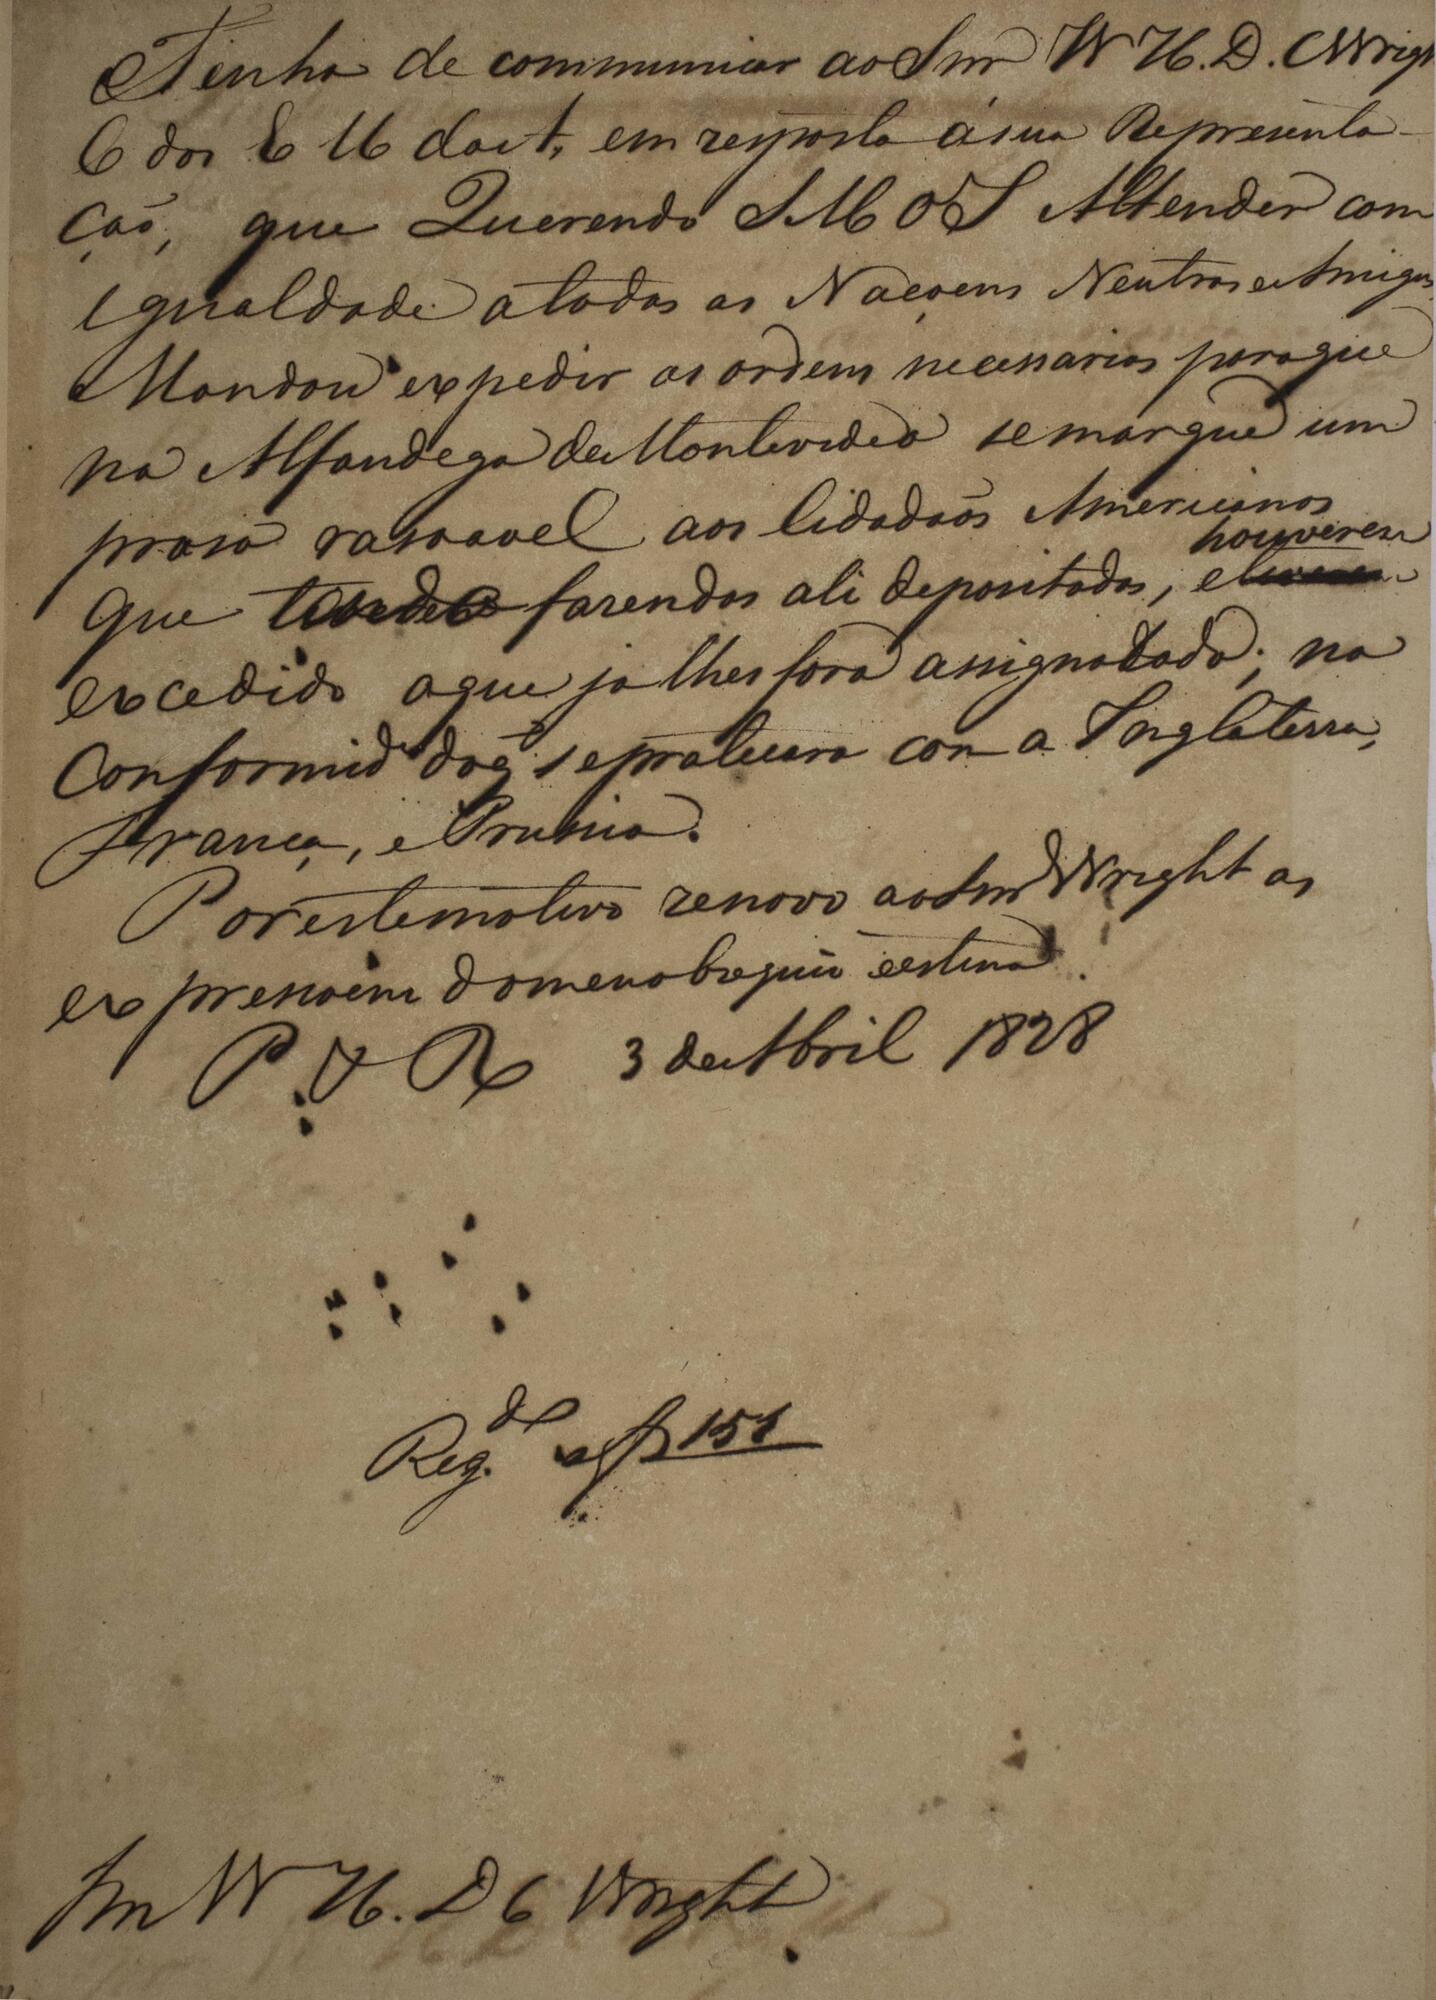 Tenho de communicar ao Snr W H. D. C Wrigh
C dos E U da A, em resposta á sua Representa-
ção, que Querendo S M O I Attender com
igualdade a todas as Naçoens Neutras e Amigas
Mandou expedir as ordens necessarias para que
na Alfandega de Montevideo se marque um
praso rasoavel aos Cidadaõs Americanos
houverem
que fazendas ali depositadas, e
excedido o que ja lhes fora assignado; na
Conformide do q̃ se praticara com a Inglaterra,
França, e Prussia.
Por este motivo renovo ao Snr Wright as
expressoens do meu obsequio e estima.
P. do R 3 de Abril 1828
Reg.do a f 151
Snr W H. D C Wright